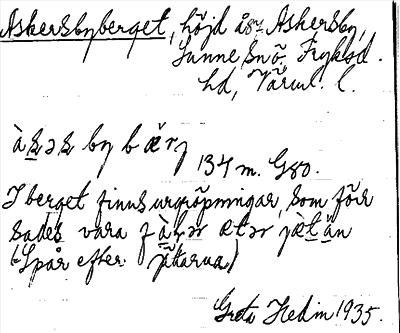 Askersbyberget, höjd åsv Askersby,
Sunne Snō, Fryksd.
hd, Värml. l.
àskəs by bærj
134 m. GSO.
I berget finns urgröpningar, som förr
sades vara fàtər ætər jætän
(Spår efter jätarna)
Greta Hedin 1935.